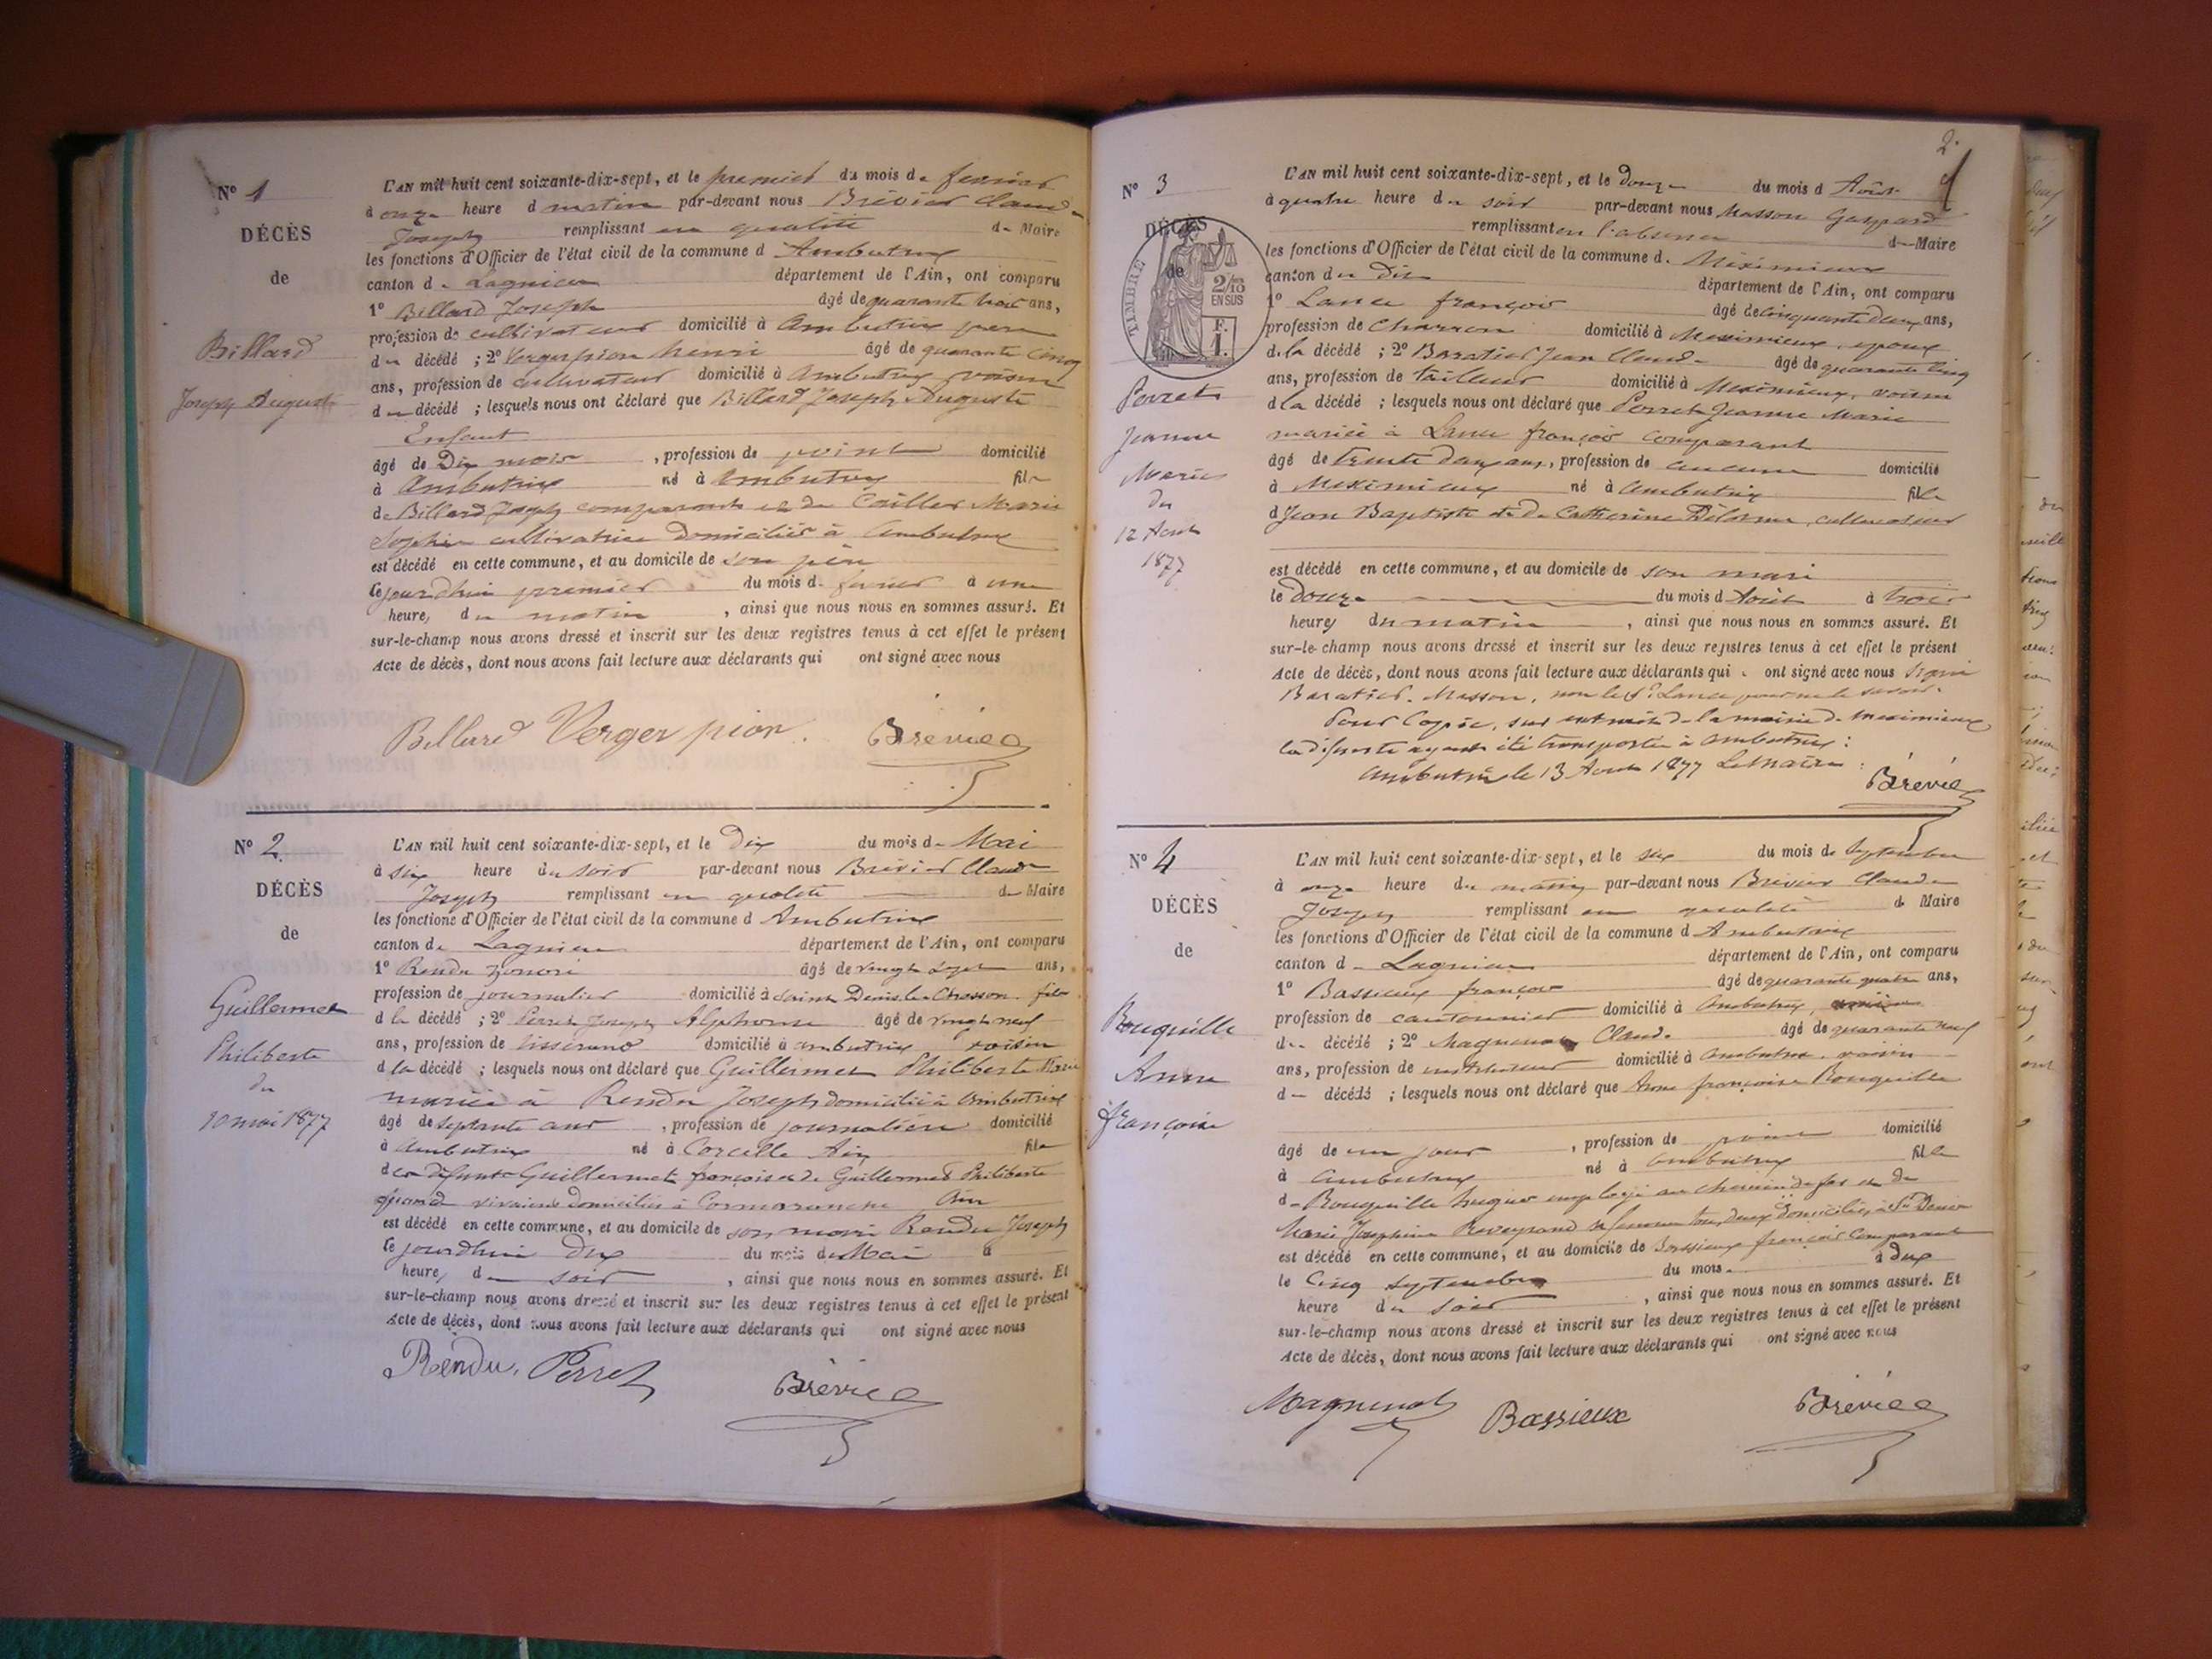 N° 1
DÉCÈS
de
Billard
Joseph Auguste
L'AN mil huit cent soixante-dix-sept, et le premier du mois de fevrier
à onze heure d matin par-devant nous Brévier Claude
Joseph remplissant en qualité de Maire
les fonctions d'Officier de l'état civil de la commune d Ambutrix
canton de Lagnieu département de l'Ain, ont comparu
1° Billard Joseph âgé de quarante trois ans,
profession de cultivateur domicilié à Ambutrix pere
du décédé ; 2° Vergerpion henri âgé de quarante cinq
ans, profession de cultivateur domicilié à Ambutrix voisin
du décédé ; lesquels nous ont déclaré que Billard Joseph Auguste
Enfant
âgé de Dix mois , profession de point domicilié
à Ambutrix né à Ambutrix fils
de Billard Joseph comparant et de Cailler Marie
Sophie cultivatrice domiciliés à Ambutrix
est décédé en cette commune, et au domicile de son père
le jourdhui premier du mois de fevrier à une
heure, du matin , ainsi que nous nous en sommes assuré. Et
sur-le-champ nous avons dressé et inscrit sur les deux registres tenus à cet effet le présent
Acte de décès, dont nous avons fait lecture aux déclarants qui ont signé avec nous
Billard Vergerpion. Brévier
N° 2
DÉCÈS
de
Guillermet
Philiberte
du
10 mai 1877
L'AN mil huit cent soixante-dix-sept, et le Dix du mois de Mai
à six heure du soir par-devant nous Brévier Claude
Joseph remplissant en qualité de Maire
les fonctions d'Officier de l'état civil de la commune d Ambutrix
canton de Lagnieu département de l'Ain, ont comparu
1° Rendu honoré âgé de vingt sept ans,
profession de journalier domicilié à Saint Denis le Chosson fils
d la décédé ; 2° Perret Joseph Alphonse âgé de vingt neuf
ans, profession de tisserand domicilié à ambutrix voisin
d la décédé ; lesquels nous ont déclaré que Guillermet Philiberte Marie
mariée à Rendu Joseph domicilié à Ambutrix
âgé de septante ans , profession de journalière domicilié
à Ambutrix né à Corcelle Ain fille
des défunts Guillermet françois et de Guillermet Philiberte
quand vivaient domiciliés à Cormaranche Ain
est décédé en cette commune, et au domicile de son mari Rendu Joseph
le jourdhui dix du mois de Mai à
heure, du soir , ainsi que nous nous en sommes assuré. Et
sur-le-champ nous avons dressé et inscrit sur les deux registres tenus à cet effet le présent
Acte de décès, dont nous avons fait lecture aux déclarants qui ont signé avec nous
Rendu, Perret Brévier
2
N° 3
DÉCÈS
de
TIMBRE
2/10
EN SUS
F.
1.
Perret
Jeanne
Marie
du
12 Aout
1877
L'AN mil huit cent soixante-dix-sept, et le douze du mois d Août
à quatre heure du soir par-devant nous Masson Gaspard
remplissant en l'absence du Maire
les fonctions d'Officier de l'état civil de la commune de Méximieux
canton du dit département de l'Ain, ont comparu
1° Lance françois âgé de cinquante deux ans,
profession de Charron domicilié à Meximieux, epoux
de la décédé ; 2° Baratier Jean Claude âgé de quarante cinq
ans, profession de tailleur domicilié à Meximieux, voisin
d la décédé ; lesquels nous ont déclaré que Perret Jeanne Marie
mariée à Lance françois comparant
âgé de trente deux ans, profession de aucune domicilié
à Meximieux né à Ambutrix fille
d Jean Baptiste et de Catherine Délorme, cultivateurs
est décédé en cette commune, et au domicile de son mari
le Douze du mois d Août à trois
heures du matin , ainsi que nous nous en sommes assuré. Et
sur-le-champ nous avons dressé et inscrit sur les deux registres tenus à cet effet le présent
Acte de décès, dont nous avons fait lecture aux déclarants qui ont signé avec nous Signé
Baratier. Masson, non le sr Lance pour ne le savoir.
Pour Copie, sur extrait de la mairie de meximieux
la défunte ayant été transportée à Ambutrix :
Ambutrix le 13 Aout 1877 Le Maire : Brévier
N° 4
DÉCÈS
de
Bouquille
Anne
françoise
L'AN mil huit cent soixante-dix-sept, et le six du mois de Septembre
à onze heure du matin par-devant nous Brévier Claude
Joseph remplissant en qualité de Maire
les fonctions d'Officier de l'état civil de la commune d Ambutrix
canton de Lagnieu département de l'Ain, ont comparu
1° Bassieux françois âgé de quarante quatre ans,
profession de cantonnier domicilié à Ambutrix,
du décédé ; 2° Magnenot Claude âgé de quarante neuf
ans, profession de instituteur domicilié à Ambutrix voisin
d décédé ; lesquels nous ont déclaré que Anne françoise Bouquille
âgé de un jour , profession de point domicilié
à Ambutrix né à Ambutrix fille
de Bouquille hugues employé au chemin de fer et de
Marie Josephine Reveyrand sa femme tous deux domiciliés à St Denis
est décédé en cette commune, et au domicile de Bassieux françois Comparant
le Cinq Septembre du mois à dix
heure du soir , ainsi que nous nous en sommes assuré. Et
sur-le-champ nous avons dressé et inscrit sur les deux registres tenus à cet effet le présent
Acte de décès, dont nous avons fait lecture aux déclarants qui ont signé avec nous
Magnenot Bassieux Brévier